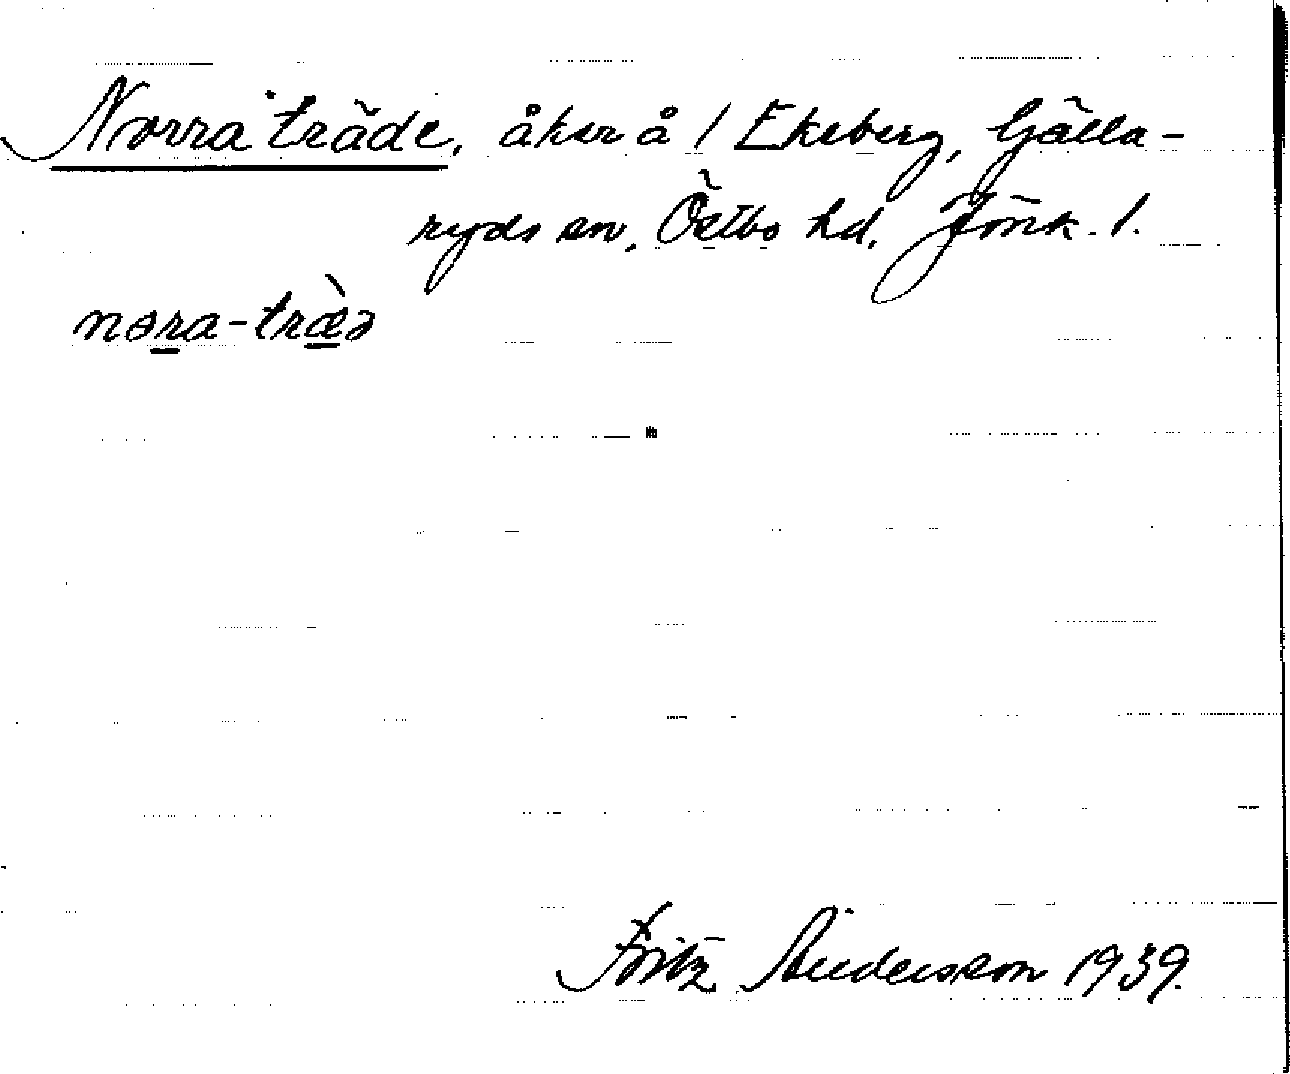 Norra träde, åker å / Ekeberg, Gälla-
ryds sn, Östbo hd, Jönk. l.
nɵra-træ̀ə
Fritz Andersson 1939.